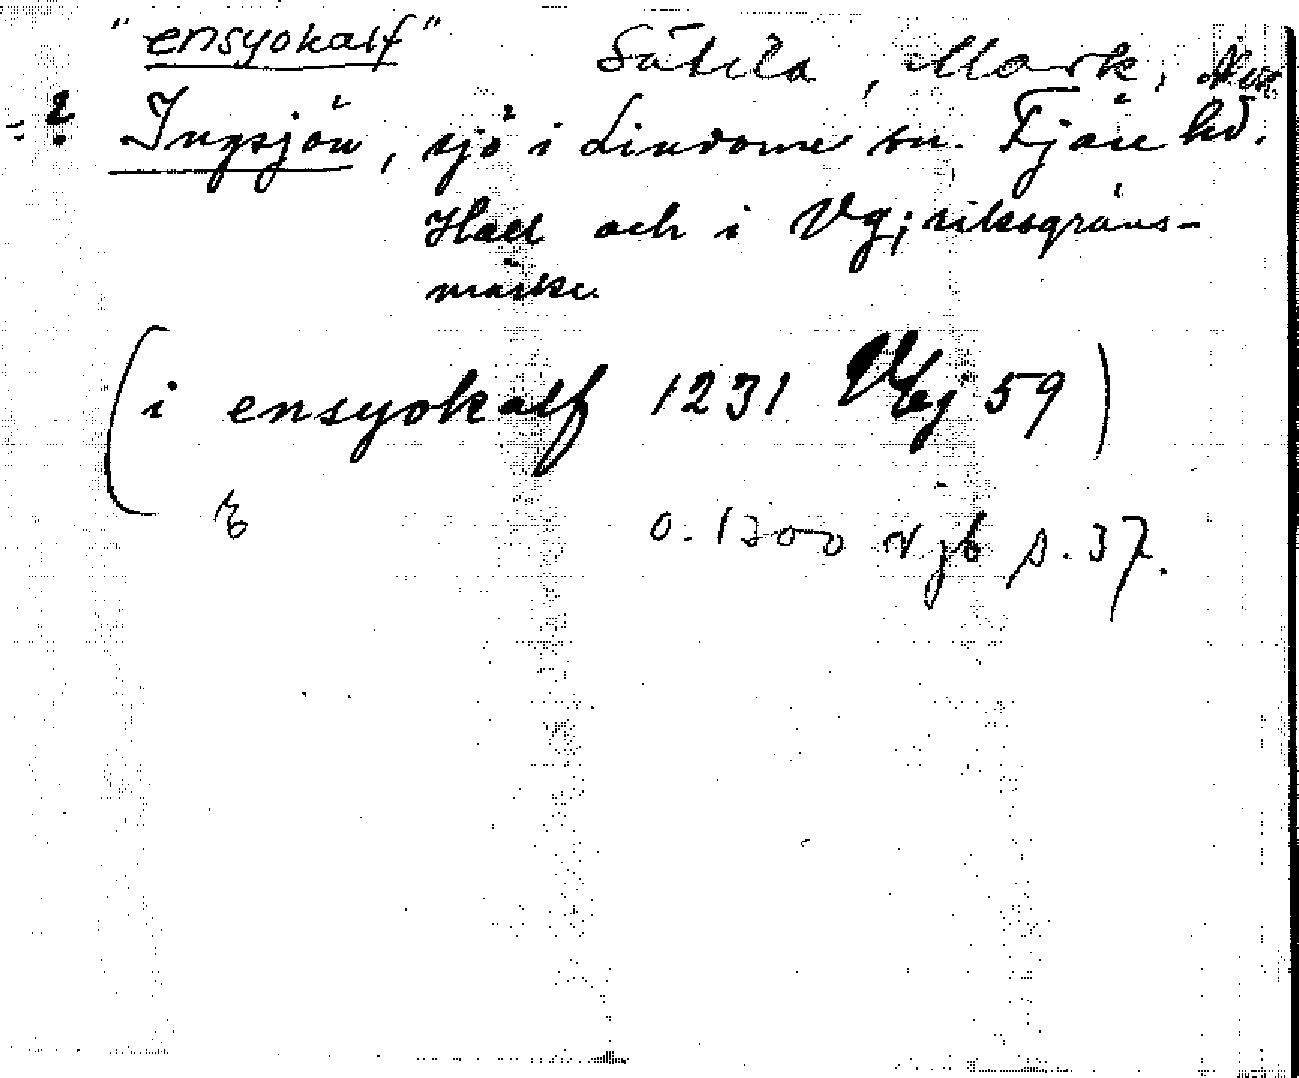 "ensyokalf" Sätila, Mark,
? Ingsjön, sjö i Lindome sn. Fjäre hd.
Hall och i Vg; riksgräns-
märke.
(i ensyokalf 1231 VLj 59)
o. 1300 vjb p. 37.